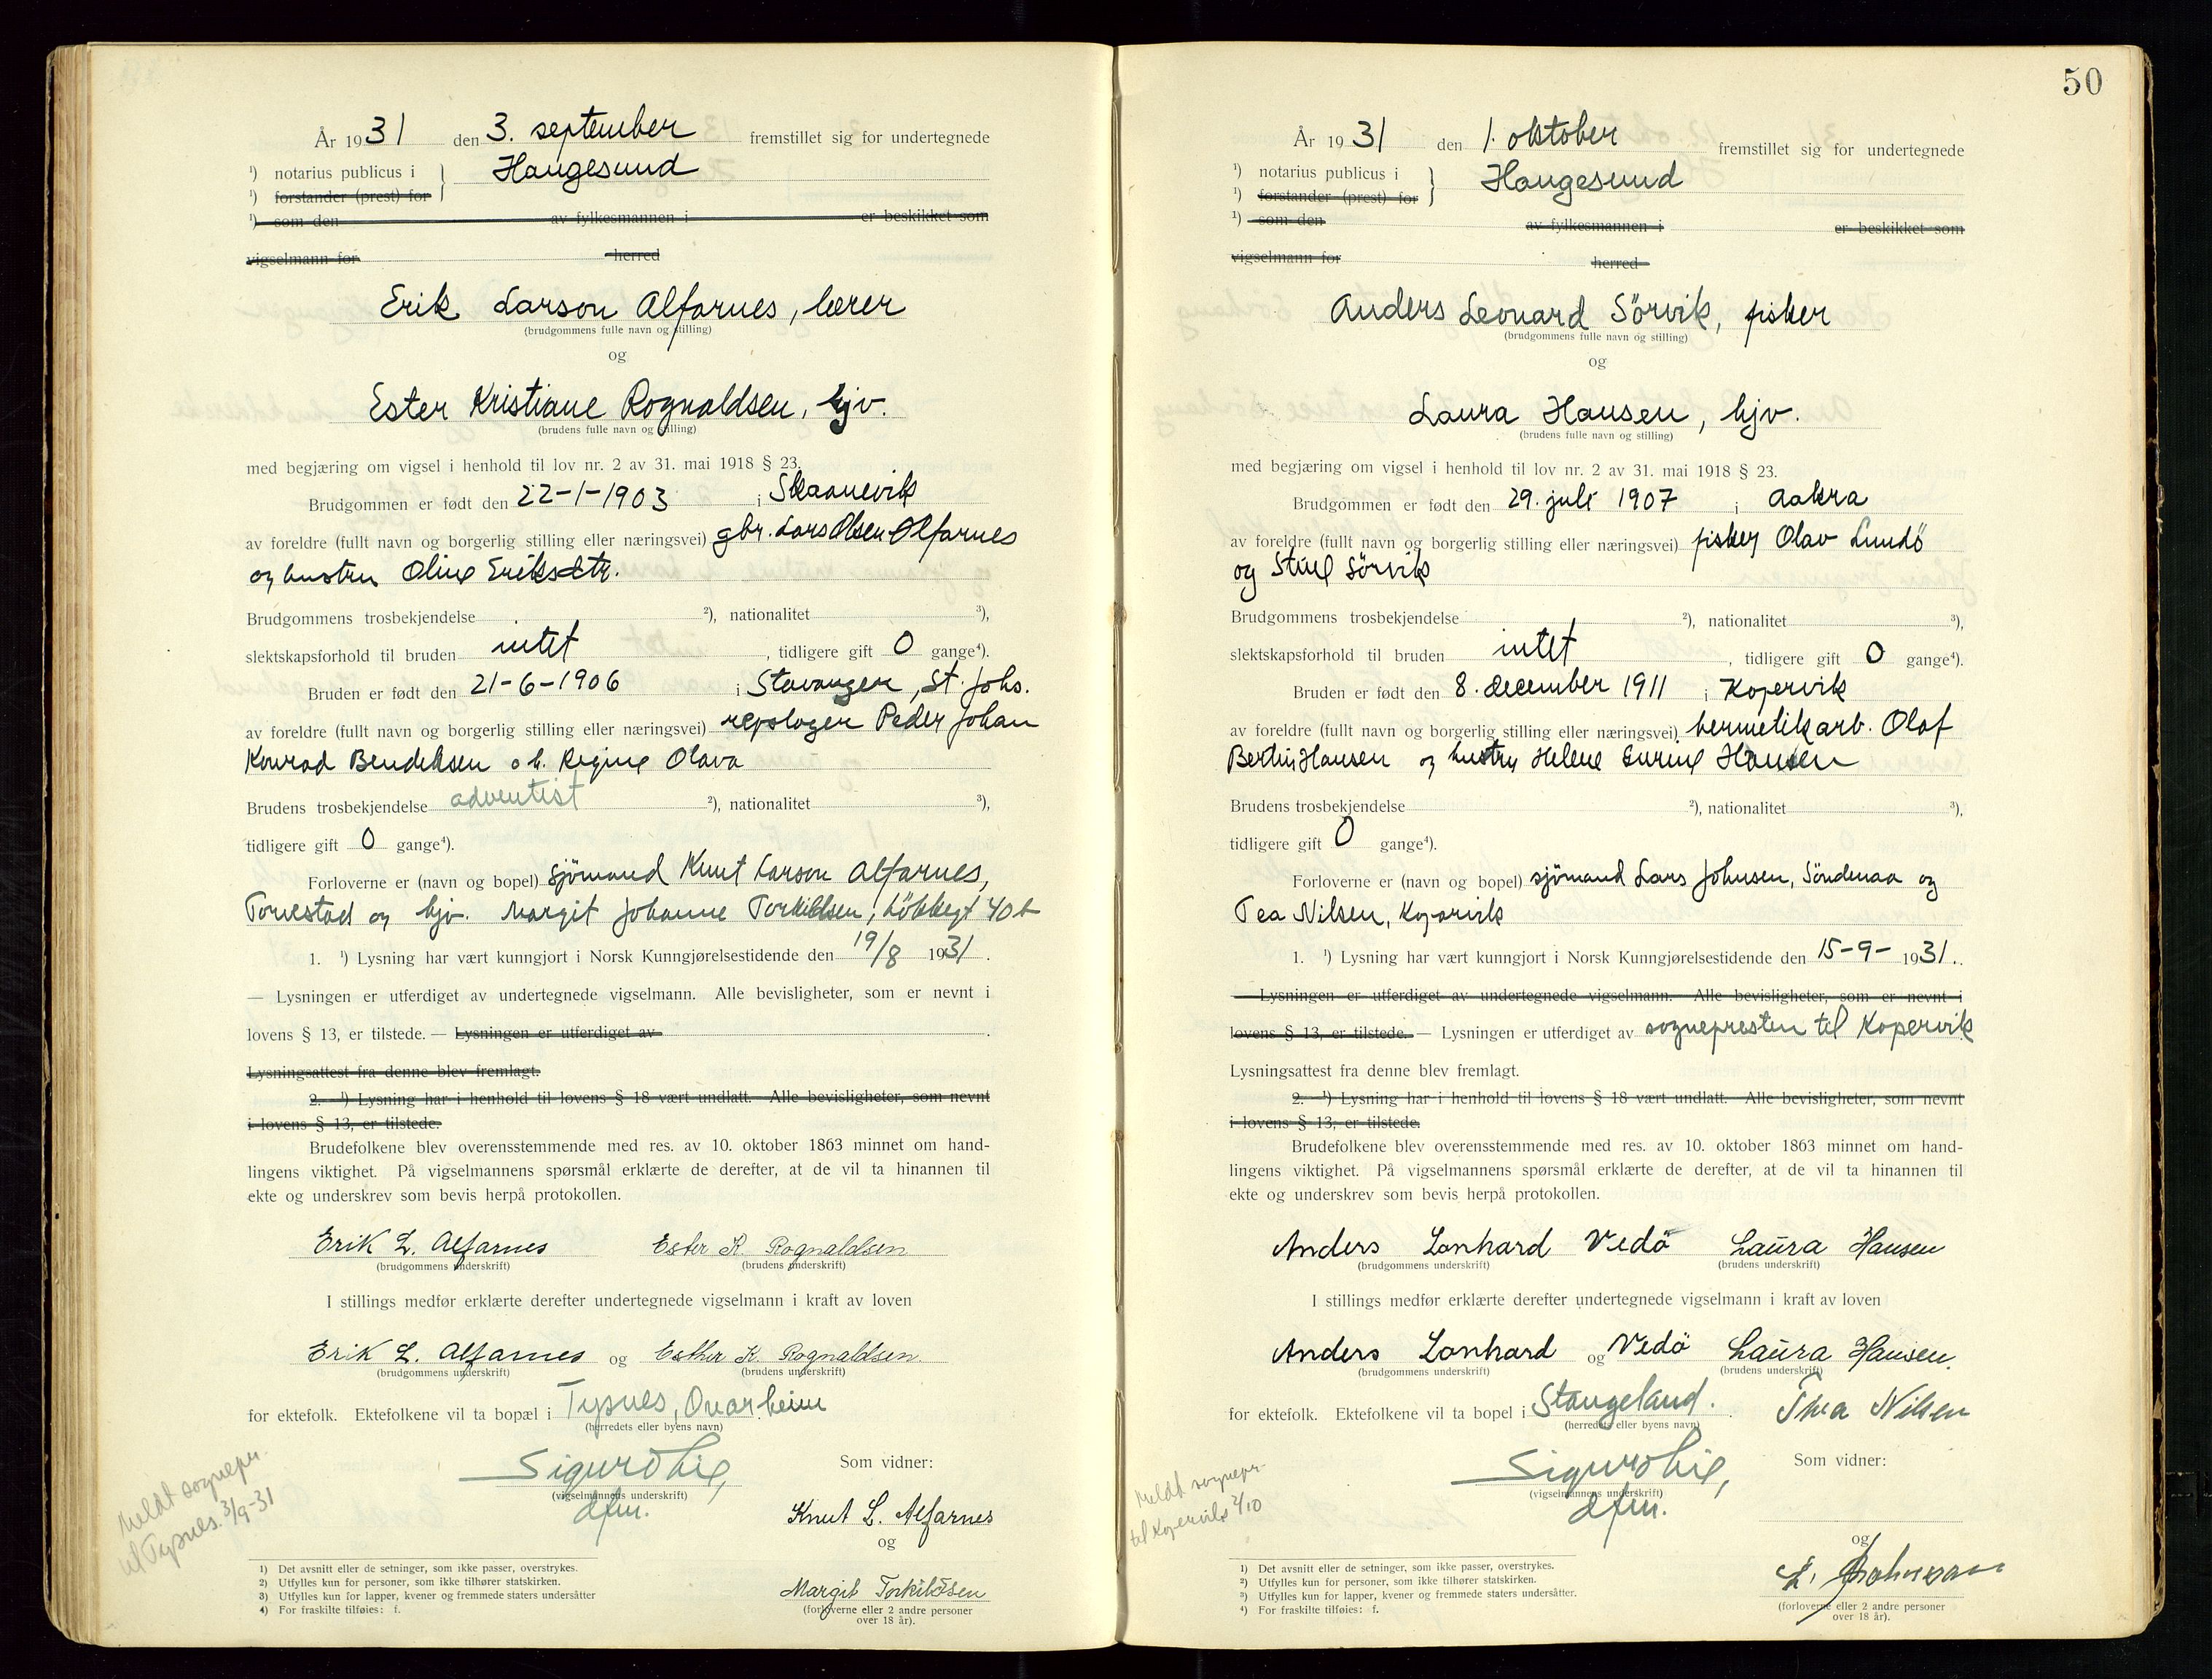 År 1931 den 3. september fremstillet sig for undertegnede
¹) notarius publicus i } Haugesund
¹) forstander (prest) for
¹) som den av fylkesmannen i er beskikket som
vigselmann for herred
Erik Larson Alfarnes, lærer
(brudgommens fulle navn og stilling)
og
Ester Kristiane Rognaldsen, hjv.
(brudens fulle navn og stilling)
med begjæring om vigsel i henhold til lov nr. 2 av 31. mai 1918 § 23.
Brudgommen er født den 22-1-1903 i Skaanevik
av foreldre (fullt navn og borgerlig stilling eller næringsvei) gbr. Lars Olsen Alfarnes
og hustru Oline Eriksdtr.
Brudgommens trosbekjendelse ²), nationalitet ³),
slektskapsforhold til bruden intet, tidligere gift 0 gange⁴).
Bruden er født den 21-6-1906 i Stavanger, St. Johs.
av foreldre (fullt navn og borgerlig stilling eller næringsvei) repslager Peder Johan
Konrad Bendiksen o.h. Regine Olava
Brudens trosbekjendelse adventist ²), nationalitet ³),
tidligere gift 0 gange⁴).
Forloverne er (navn og bopel) sjömand Knut Larson Alfarnes,
Torvestad og hjv. Margit Johanne Torkildsen, 40 b
1. ¹) Lysning har vært kunngjort i Norsk Kunngjørelsestidende den 19/8 1931.
— Lysningen er utferdiget av undertegnede vigselmann. Alle bevisligheter, som er nevnt i
lovens § 13, er tilstede. — Lysningen er utferdiget av .
Lysningsattest fra denne blev fremlagt.
2. ¹) Lysning har i henhold til lovens § 18 vært undlatt. Alle bevisligheter, som nevnt
i lovens § 13, er tilstede.
Brudefolkene blev overensstemmende med res. av 10. oktober 1863 minnet om hand-
lingens viktighet. På vigselmannens spørsmål erklærte de derefter, at de vil ta hinannen til
ekte og underskrev som bevis herpå protokollen.
Erik L. Alfarnes Ester K. Rognaldsen
(brudgommens underskrift) (brudens underskrift)
I stillings medfør erklærte derefter undertegnede vigselmann i kraft av loven
Erik L. Alfarnes og Esther K. Rognaldsen.
(brudgommens underskrift) (brudens underskrift)
for ektefolk. Ektefolkene vil ta bopæl i Tysnes, Onarheim
(herredets eller byens navn)
Sigurd Lie, Som vidner:
(vigselmannens underskrift)
dfm.
Knut L. Alfarnes
og
Margit Torkildsen
(forloverne eller 2 andre personer
over 18 år).
Meldt sognepr.
til Tysnes. 3/9-31
1) Det avsnitt eller de setninger, som ikke passer, overstrykes.
2) Utfylles kun for personer, som ikke tilhører statskirken.
3) Utfylles kun for lapper, kvener og fremmede staters undersåtter
4) For fraskilte tilføies: f.
50
År 1931 den 1. oktober fremstillet sig for undertegnede
¹) notarius publicus i } Haugesund
¹) forstander (prest) for
¹) som den av fylkesmannen i er beskikket som
vigselmann for herred
Anders Leonard Sörvik, fisker
(brudgommens fulle navn og stilling)
og
Laura Hansen, hjv.
(brudens fulle navn og stilling)
med begjæring om vigsel i henhold til lov nr. 2 av 31. mai 1918 § 23.
Brudgommen er født den 29. juli 1907 i Aakra
av foreldre (fullt navn og borgerlig stilling eller næringsvei) fisker Olav Lundö
og Stine Sörvik
Brudgommens trosbekjendelse ²), nationalitet ³),
slektskapsforhold til bruden intet, tidligere gift 0 gange⁴).
Bruden er født den 8. december 1911 i Kopervik
av foreldre (fullt navn og borgerlig stilling eller næringsvei) hermetikarb. Olaf
Bertin Hansen og hustru Helene Hansen
Brudens trosbekjendelse ²), nationalitet ³),
tidligere gift 0 gange⁴).
Forloverne er (navn og bopel) sjömand Lars Johnsen, Söndenaa og
Tea Nilsen, Kopervik
1. ¹) Lysning har vært kunngjort i Norsk Kunngjørelsestidende den 15-9-1931.
— Lysningen er utferdiget av undertegnede vigselmann. Alle bevisligheter, som er nevnt i
lovens § 13, er tilstede. — Lysningen er utferdiget av sognepresten til Kopervik
Lysningsattest fra denne blev fremlagt.
2. ¹) Lysning har i henhold til lovens § 18 vært undlatt. Alle bevisligheter, som nevnt
i lovens § 13, er tilstede.
Brudefolkene blev overensstemmende med res. av 10. oktober 1863 minnet om hand-
lingens viktighet. På vigselmannens spørsmål erklærte de derefter, at de vil ta hinannen til
ekte og underskrev som bevis herpå protokollen.
Anders Lonhard Vedö Laura Hansen
(brudgommens underskrift) (brudens underskrift)
I stillings medfør erklærte derefter undertegnede vigselmann i kraft av loven
Anders Lonhard og Vedö Laura Hansen.
(brudgommens underskrift) (brudens underskrift)
for ektefolk. Ektefolkene vil ta bopel i Stangeland. Thea Nilsen
(herredets eller byens navn)
Sigurd Lie, Som vidner:
(vigselmannens underskrift)
dfm.
og
L.
(forloverne eller 2 andre personer
over 18 år).
Meldt sognepr.
til Kopervik 2/10
1) Det avsnitt eller de setninger, som ikke passer, overstrykes.
2) Utfylles kun for personer, som ikke tilhører statskirken.
3) Utfylles kun for lapper, kvener og fremmede staters undersåtter.
4) For fraskilte tilføies: f.